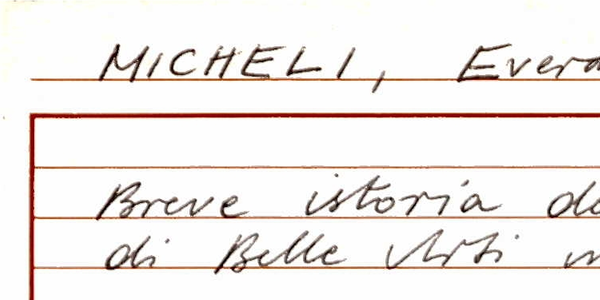 MICHELI, Evera
Breve istoria de
di Belle Arti in